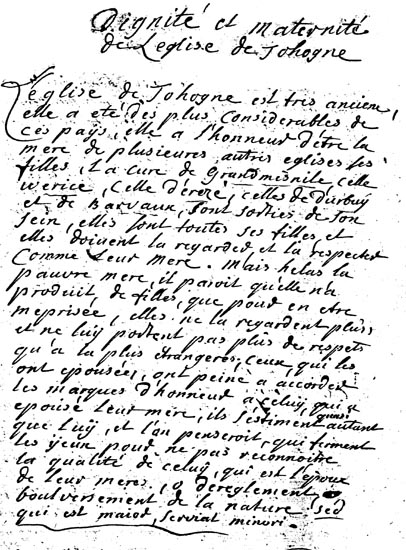 Dignité et maternité
de Leglise de Tohogne
Leglise de Tohogne est tres ancienne,
elle a eté des plus considerables de
ces pays, elle a l'honneur d'être la
mere de plusieures autres eglises ses
filles, la cure de grandmenile, celle
werice, Celle d'ereze, celles de durbuy
et de Barvaux, sont sorties de son
sein, elles sont toutes ses filles et
elles doivent la regarder et la respecter
Comme Leur mere. mais helas la
pauvre mere, il paroit qu'elle n'a
produit de filles, que pour en etre
meprisée, elles ne la regardent plus,
et ne luy portent pas plus de respets
qu'a la plus etrangeres, ceux, qui les
ont epousées, ont peine a accorder
les marques d'honneur à Celuy, qui at
epousé Leur mere, ils s'estiment quasi autant
que Luy, et l'on penseroit, qui ferment
les yeux pour ne pas reconnoitre
la qualité de celuy, qui est l'époux
de leur meres, o dereglement,
boulversement de la nature sed
qui est maior, serviat minori.